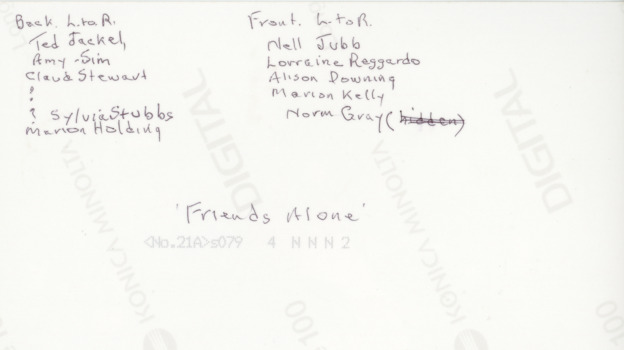 Back. L. to R.
Ted Jackel,
Amy Sim
Claud Stewart
?
?
? Sylvia Stubbs
Marion Holding
Front. L. to R.
Nell Jubb
Lorraine Reggardo
Alison Downing
Marion Kelly
Norm Gray (hidden)
'Friends Alone'
<No.21A>s079 4 N N N 2
DIGITAL
DIGITAL
KONICA MINOLTA
KONICA MINOLTA
100